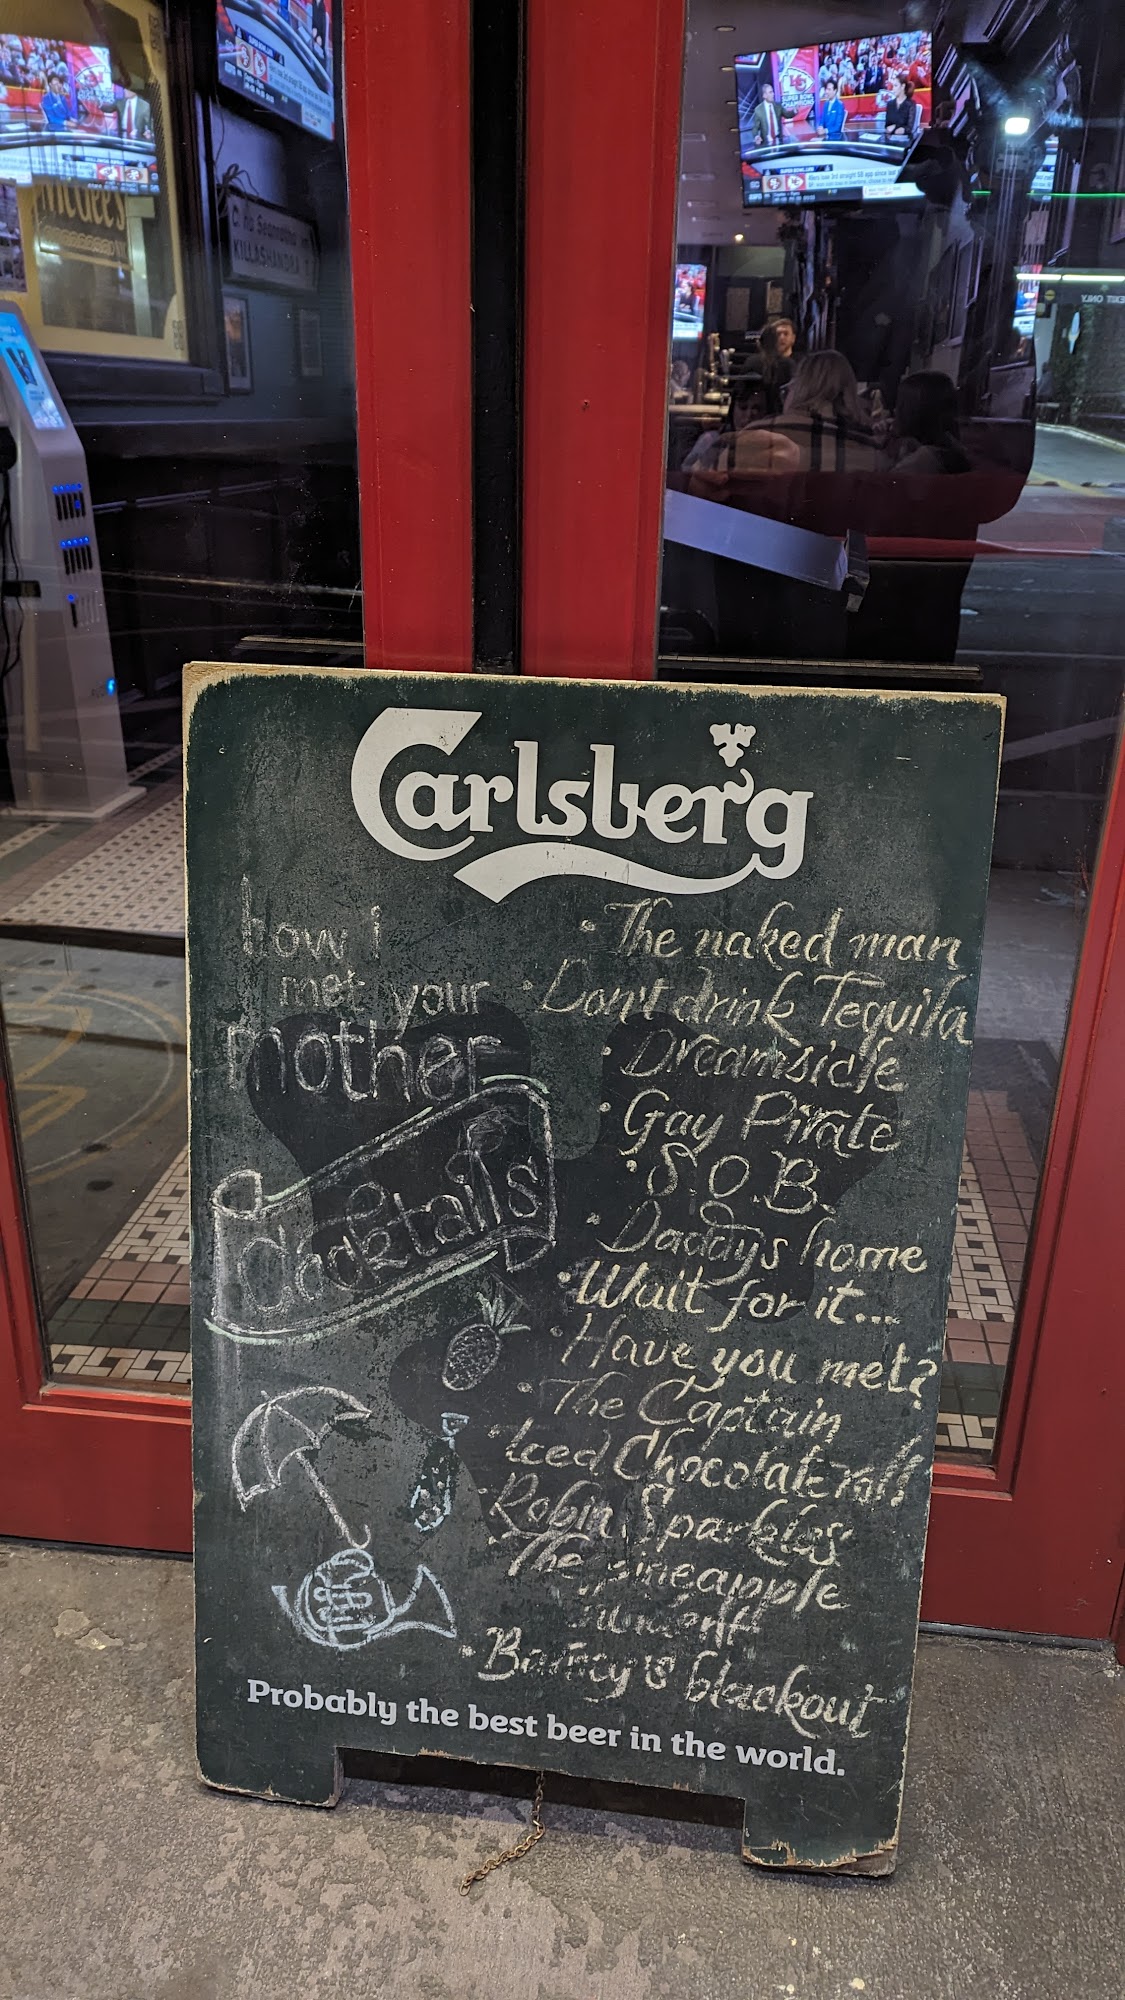 SUPER BOWL
CHAMPIONS
SUPER BOWL LVIII
McGee's
KILLASHANDRA
EXIT ONLY
Carlsberg
how i
met your
mother
Cocktails
• The naked man
• Don't drink Tequila
• Dreamsicle
• Gay Pirate
• S.O.B.
• Daddy's home
• Wait for it...
• Have you met?
• The Captain
• Iced Chocolate roll
• Robin Sparkles
• The pineapple
• Barney's blackout
Probably the best beer in the world.